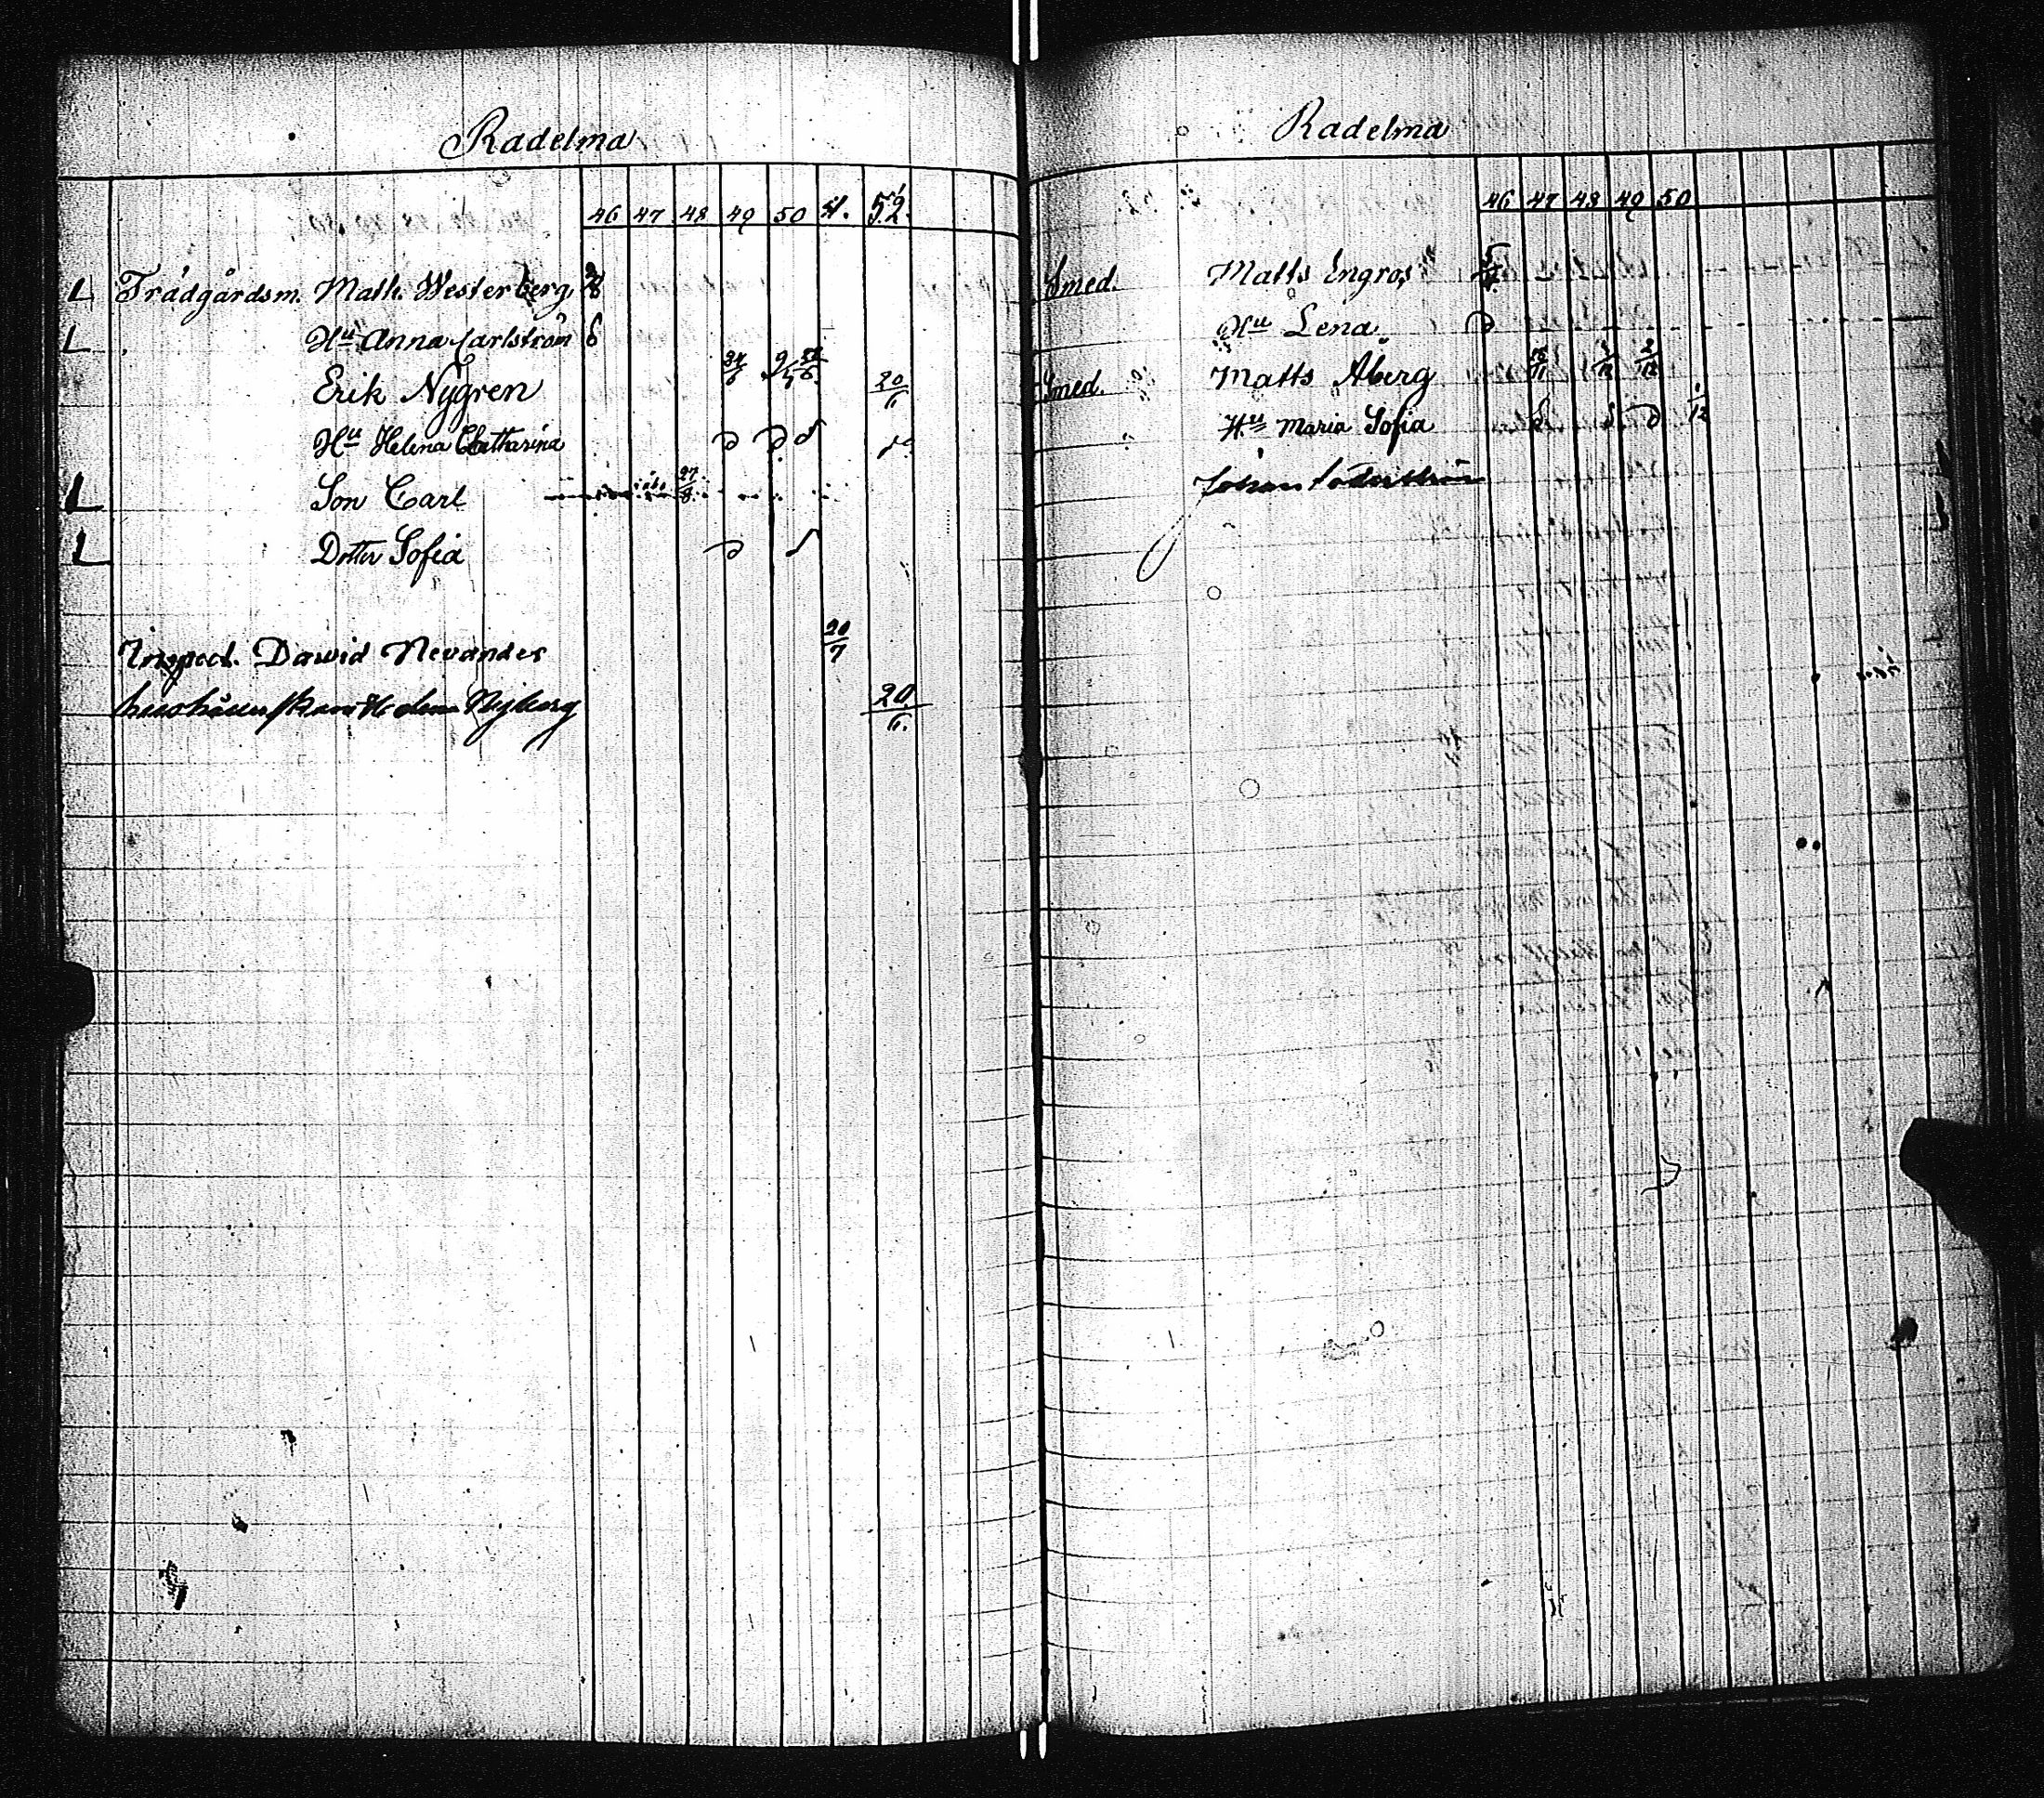 Radelma
46 47 48 49 50 51. 52.
Trädgårdsm. Math. Westerberg
Hu Anna Carlström
Erik Nygren 24/6 20/6
Hu Helena Catharina
Son Carl 27/8
Dotter Sofia
Inspect. Dawid Nevander 20/7
Helena Nyberg 20/6.
Radelma
46 47 48 49 50
Smed. Matts Engros
Hu Lena
Smed. Matts Åberg 2/12
Hu Maria Sofia 1/12
Johan Söderström